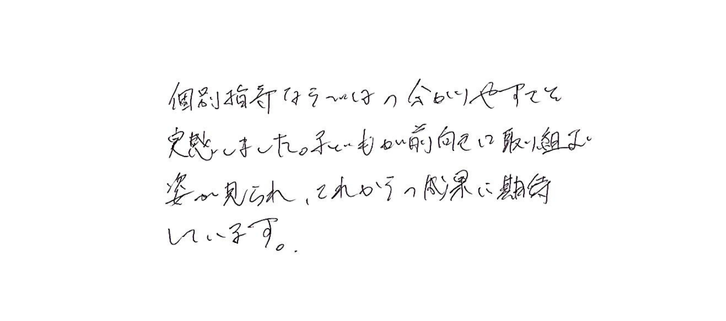 個別指導ならではの分かりやすさを
実感しました。子どもが前向きに取り組む
姿が見られ、これからの成果に期待
しています。